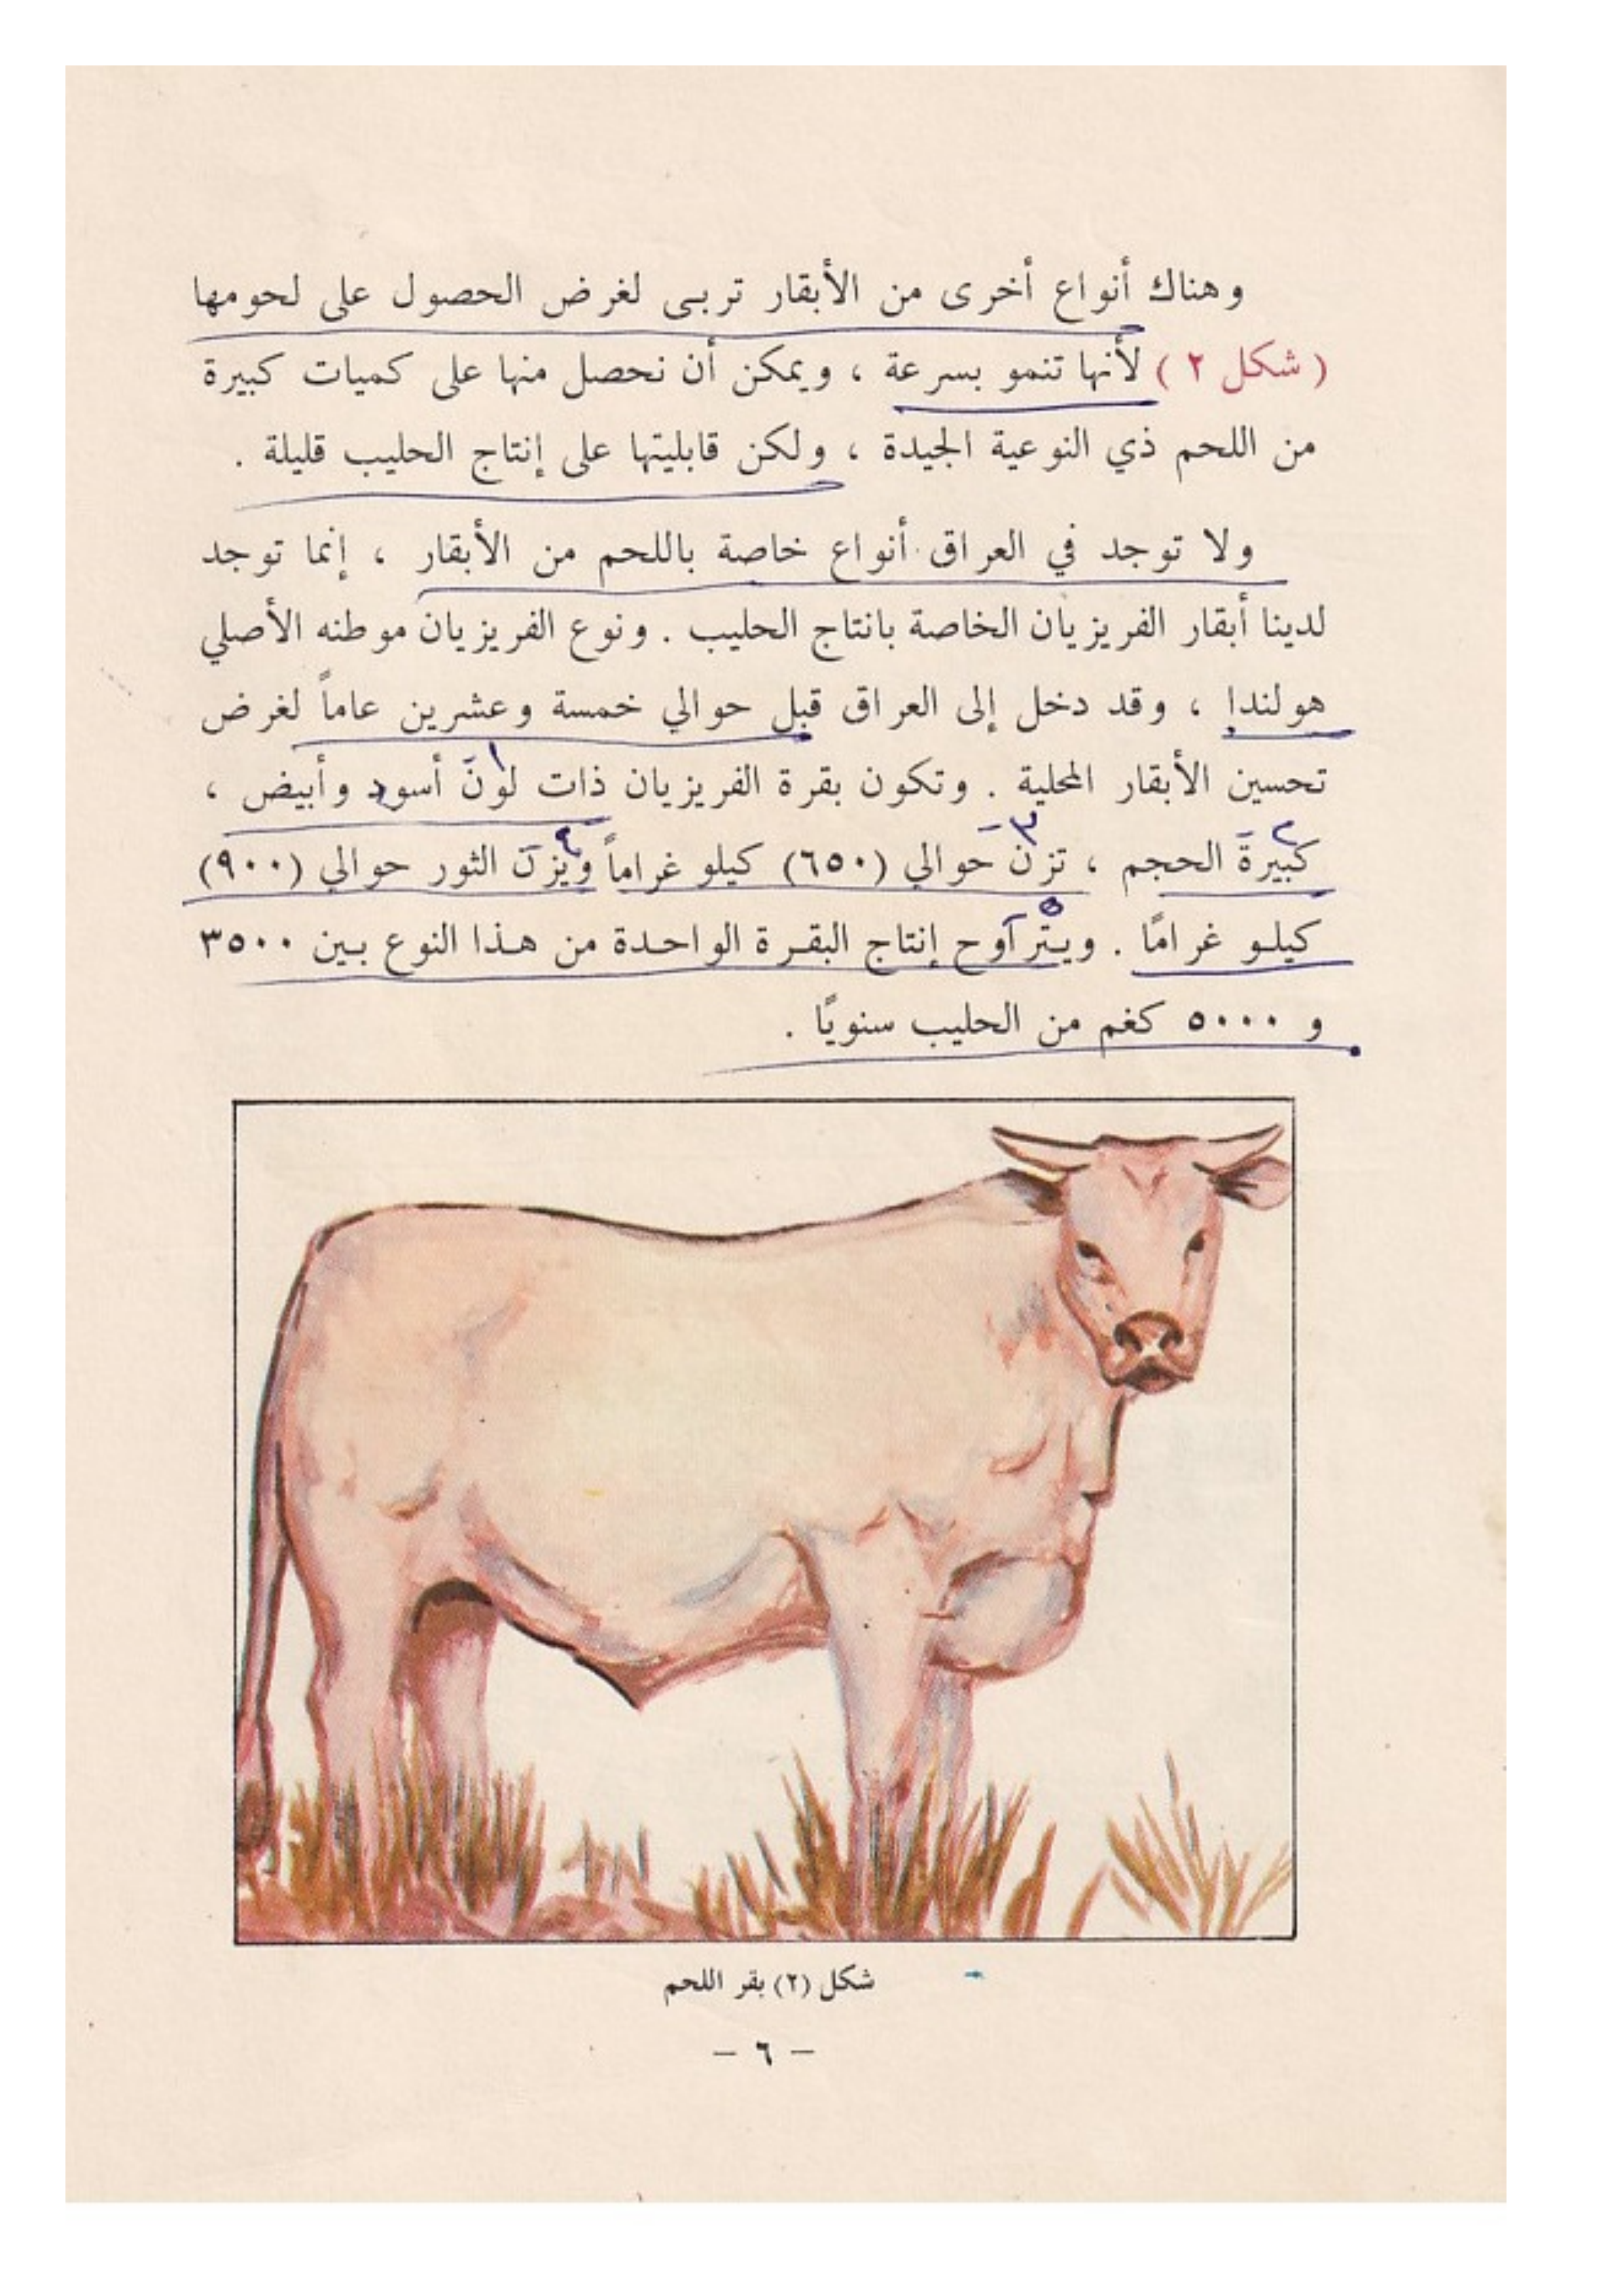 وهناك أنواع أخرى من الأبقار تربى لغرض الحصول على لحومها
( شكل ٢ ) لأنها تنمو بسرعة ، ويمكن أن نحصل منها على كميات كبيرة
من اللحم ذي النوعية الجيدة ، ولكن قابليتها على إنتاج الحليب قليلة .
ولا توجد في العراق أنواع خاصة باللحم من الأبقار ، إنما توجد
لدينا أبقار الفريزيان الخاصة بانتاج الحليب . ونوع الفريزيان موطنه الأصلي
هولندا ، وقد دخل إلى العراق قبل حوالي خمسة وعشرين عاماً لغرض
تحسين الأبقار المحلية . وتكون بقرة الفريزيان ذات لون أسود وأبيض ،
١
كبيرة الحجم ، تزن حوالي (٦٥٠) كيلو غراماً ويزن الثور حوالي (٩٠٠)
٢ ٣ ٤
كيلو غرامًا . ويتراوح إنتاج البقرة الواحدة من هذا النوع بين ٣٥٠٠
٥
و ٥٠٠٠ كغم من الحليب سنويًا .
شكل (٢) بقر اللحم
– ٦ –